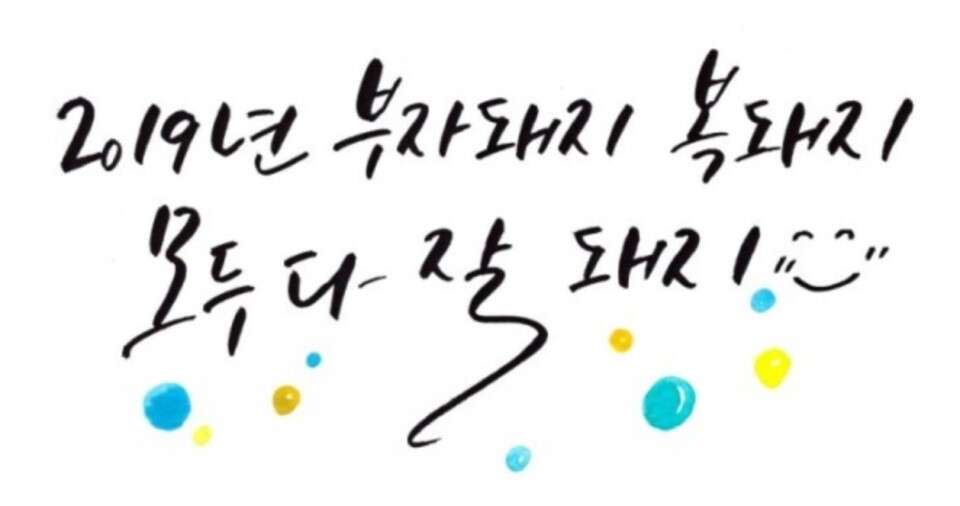 2019년 부자돼지 복돼지
모두 다 잘 돼지